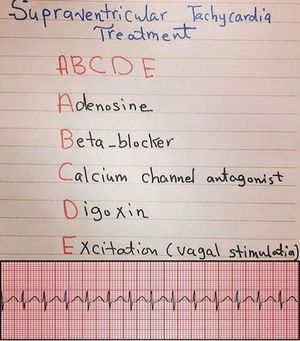 Supraventricular Tachycardia
Treatment
A B C D E
Adenosine
Beta_blocker
Calcium channel antagonist
Digoxin
Excitation (vagal stimulatio)